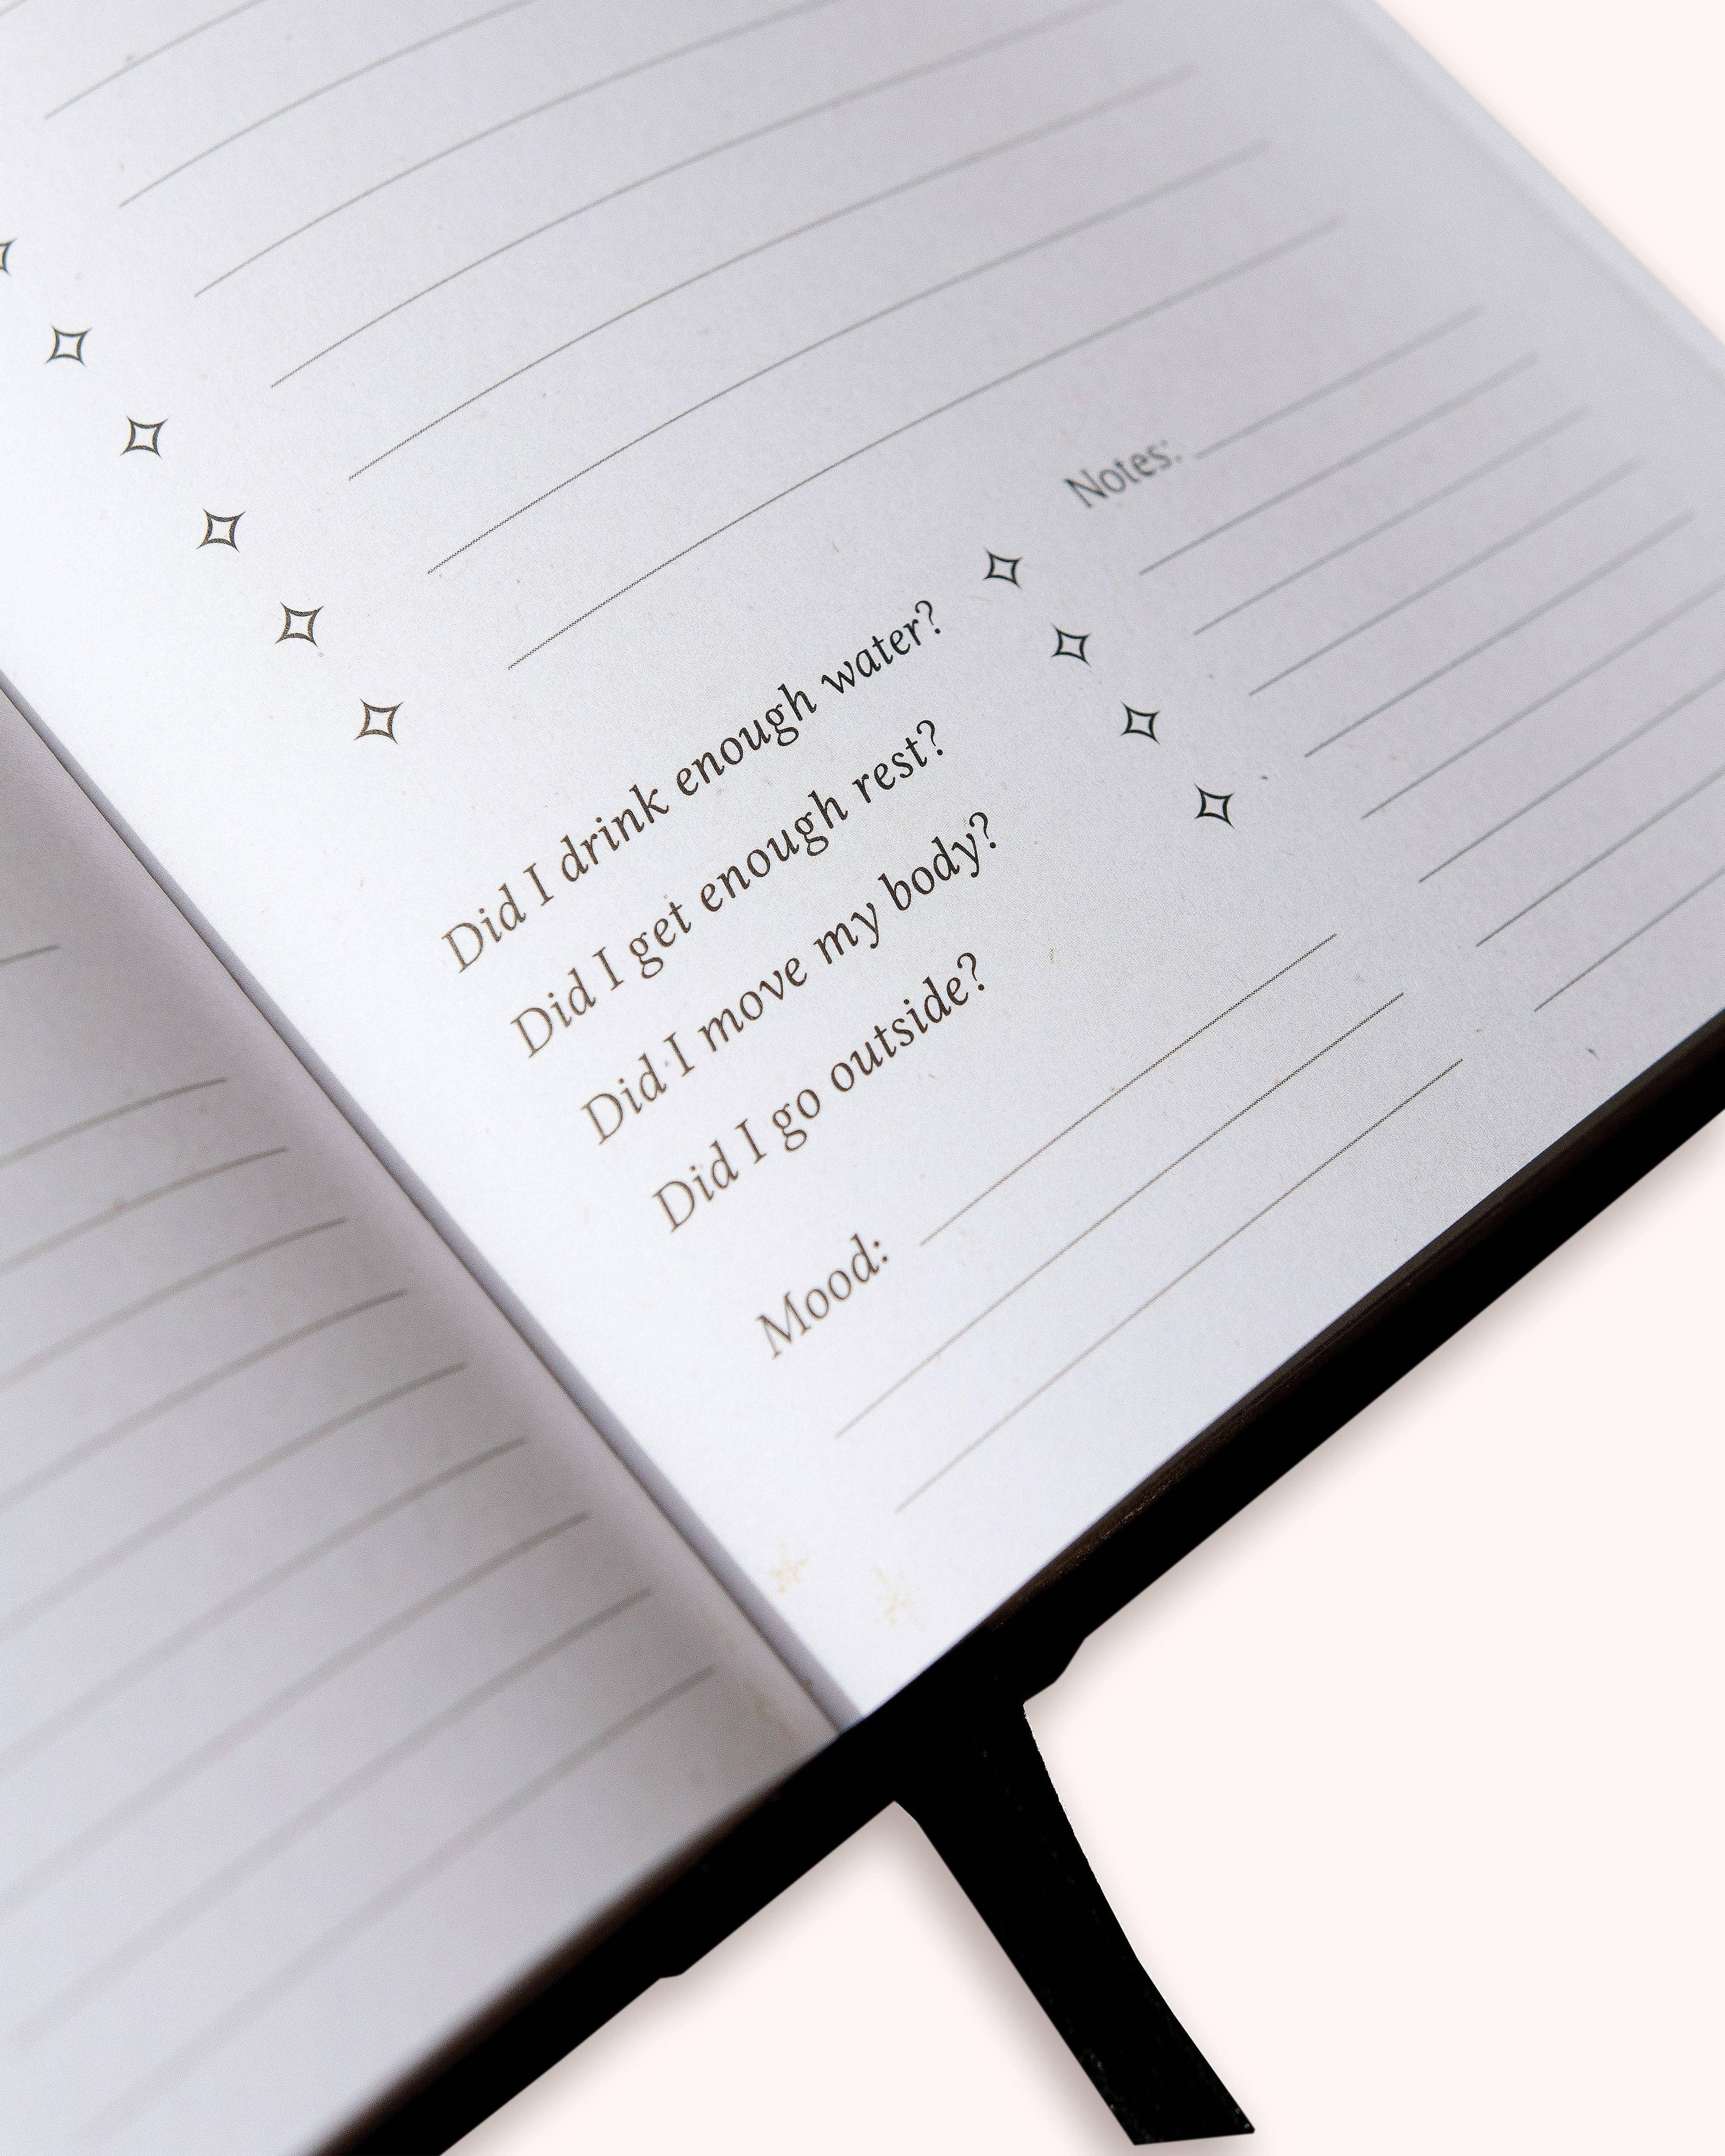 Notes:
Did I drink enough water?
Did I get enough rest?
Did I move my body?
Did I go outside?
Mood: